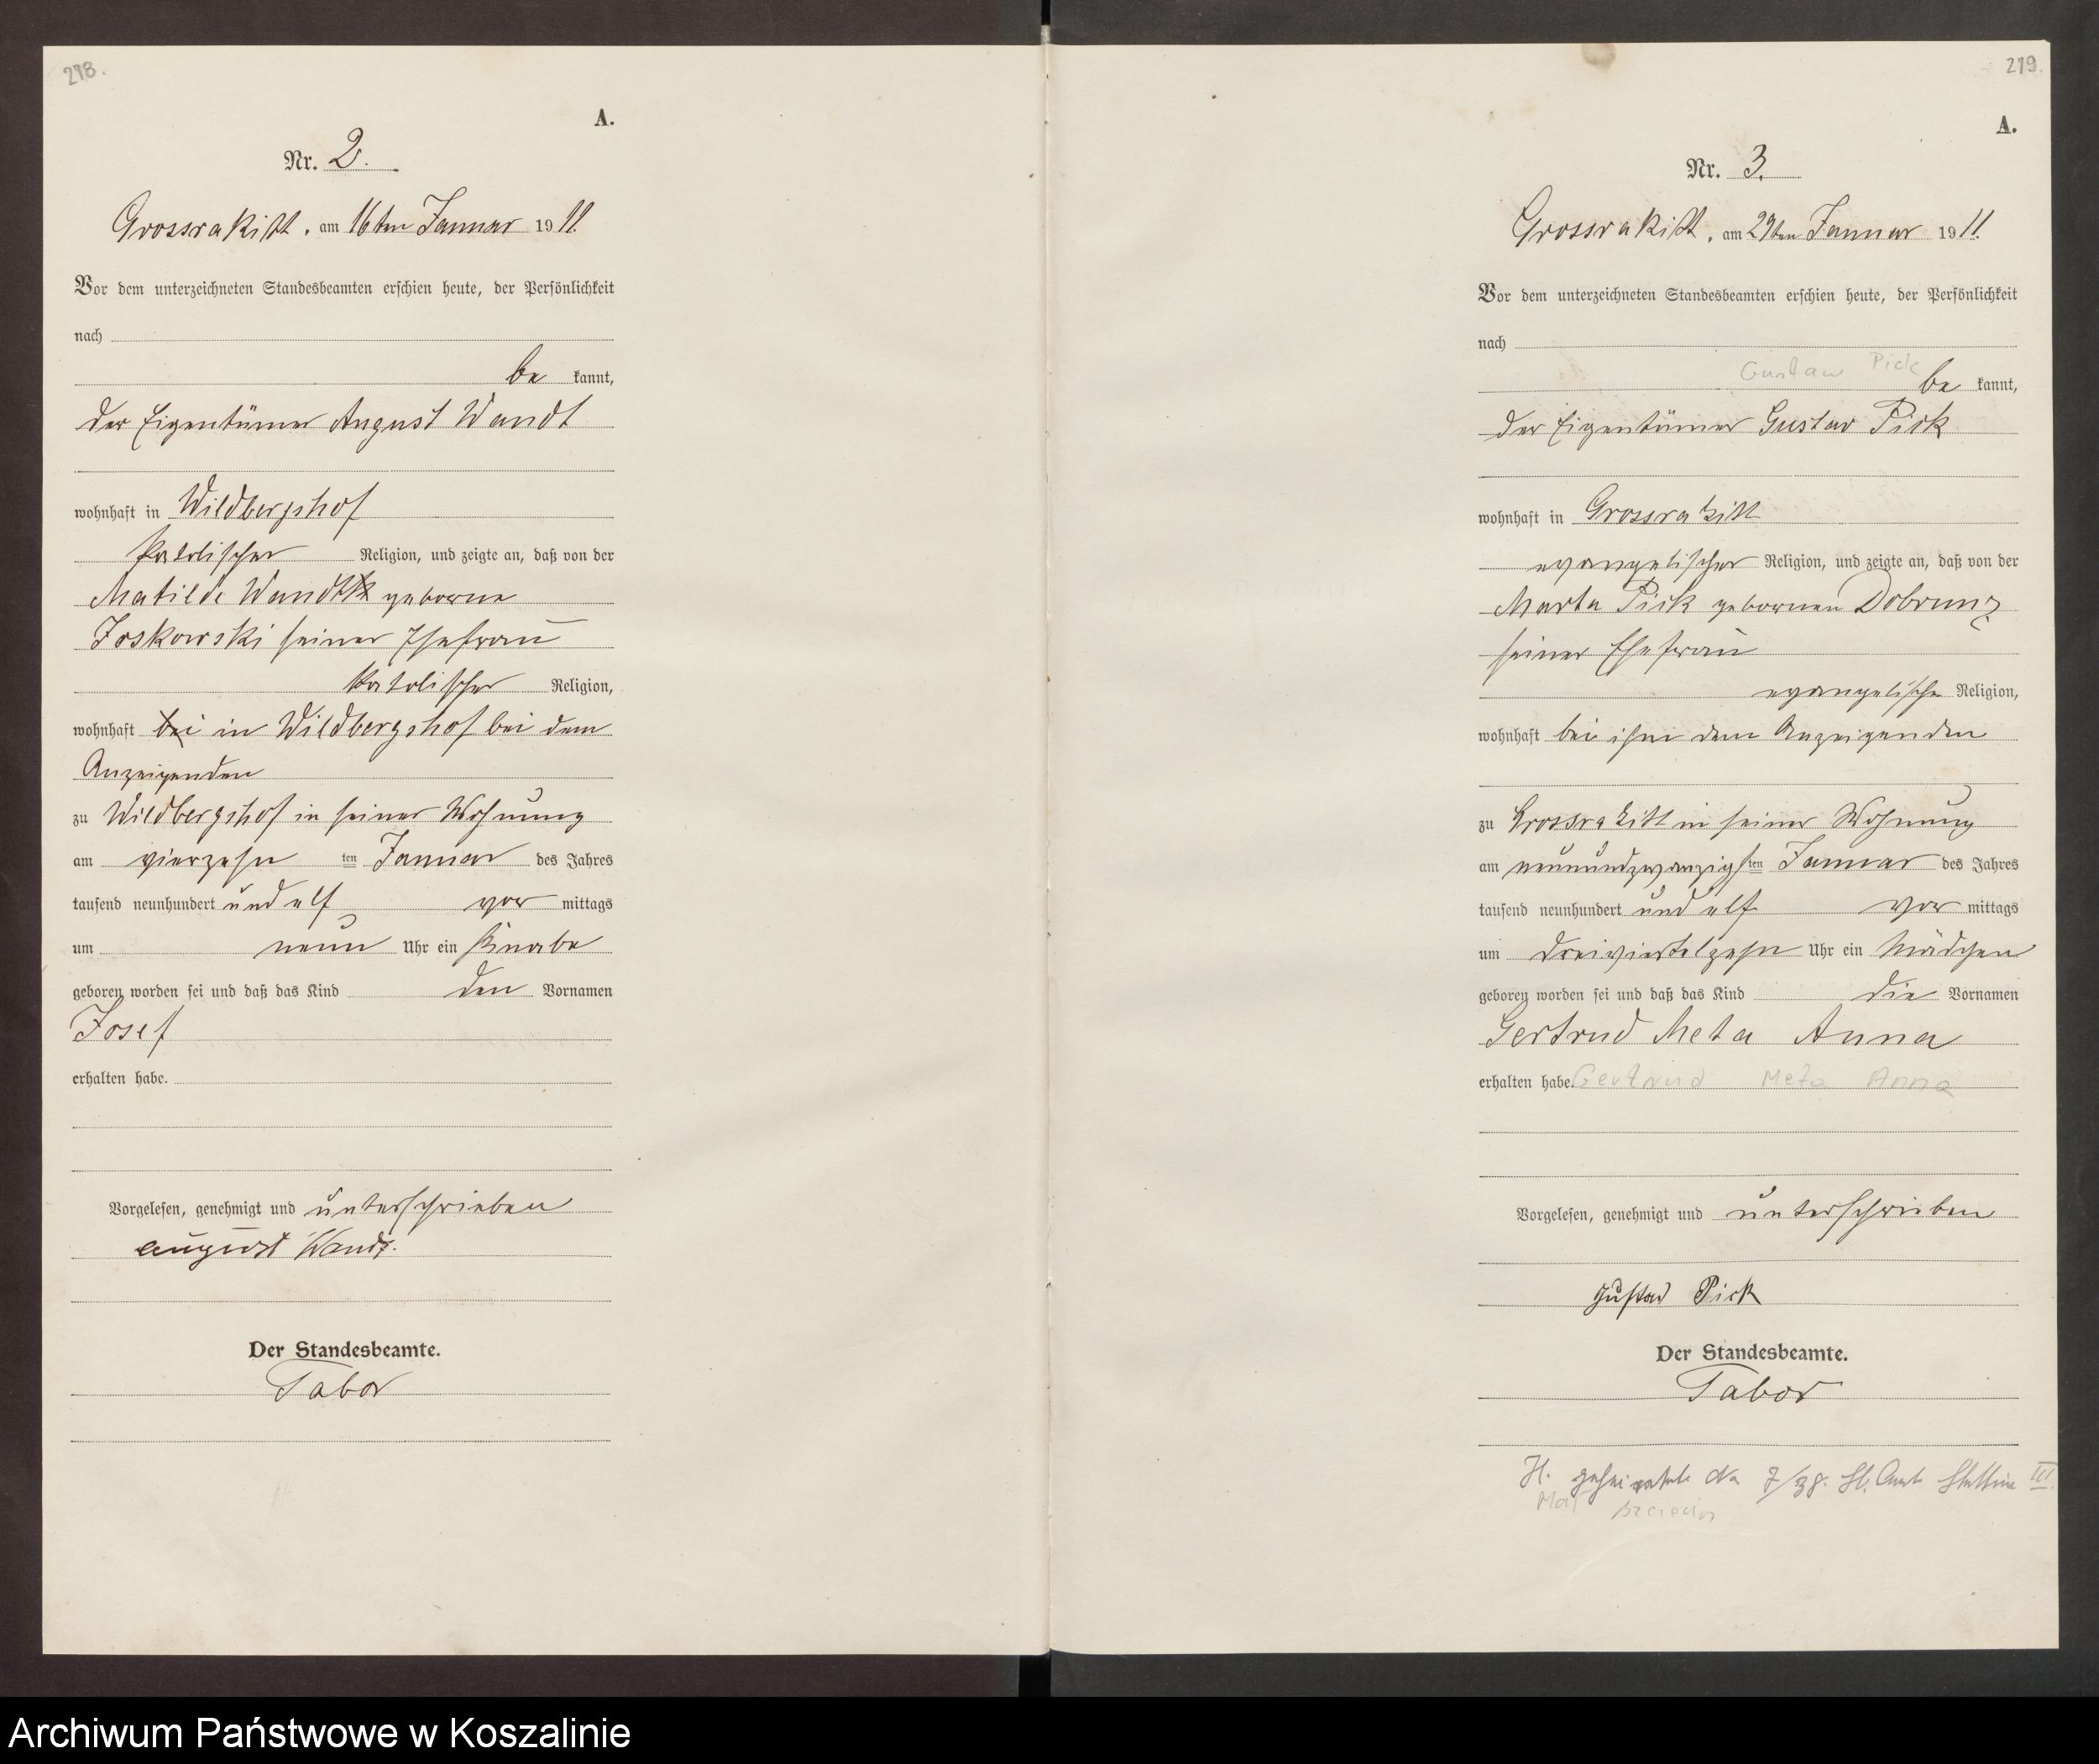 218.
A.
Nr. 2.
Grossrakitt, am 16ten Januar 1911.
Vor dem unterzeichneten Standesbeamten erschien heute, der Persönlichkeit
nach
be kannt,
der Eigentümer August Wandt
wohnhaft in Wildbergshof
katolischer Religion, und zeigte an, daß von der
Matilde Wandt geborne
Joskowski seiner Ehefrau
katolischer Religion,
wohnhaft bei in Wildbergshof bei dem
Anzeigenden
zu Wildbergshof in seiner Wohnung
am vierzehn ten Januar des Jahres
tausend neunhundert und elf vor mittags
um neun Uhr ein Knabe
geboren worden sei und daß das Kind den Vornamen
Josef
erhalten habe.
Vorgelesen, genehmigt und unterschrieben
August Wandt.
Der Standesbeamte.
Tabor
219.
A.
Nr. 3.
Grossrakitt, am 29ten Januar 1911.
Vor dem unterzeichneten Standesbeamten erschien heute, der Persönlichkeit
nach
Gustaw Pick
be kannt,
der Eigentümer Gustav Pick
wohnhaft in Grossrakitt
evangelischer Religion, und zeigte an, daß von der
Marta Pick gebornen Dobrunz
seiner Ehefrau
evangelische Religion,
wohnhaft bei ihm dem Anzeigenden
zu Grossrakitt in seiner Wohnung
am neunundzwanzigsten Januar des Jahres
tausend neunhundert und elf vor mittags
um dreiviertelzehn Uhr ein Mädchen
geboren worden sei und daß das Kind die Vornamen
Gertrud Meta Anna
erhalten habe. Gertrud Meta Anna
Vorgelesen, genehmigt und unterschrieben
Gustav Pick
Der Standesbeamte.
Tabor
geheiratet No 7/38. St. Amt Stettin III.
Szczecin
Archiwum Państwowe w Koszalinie